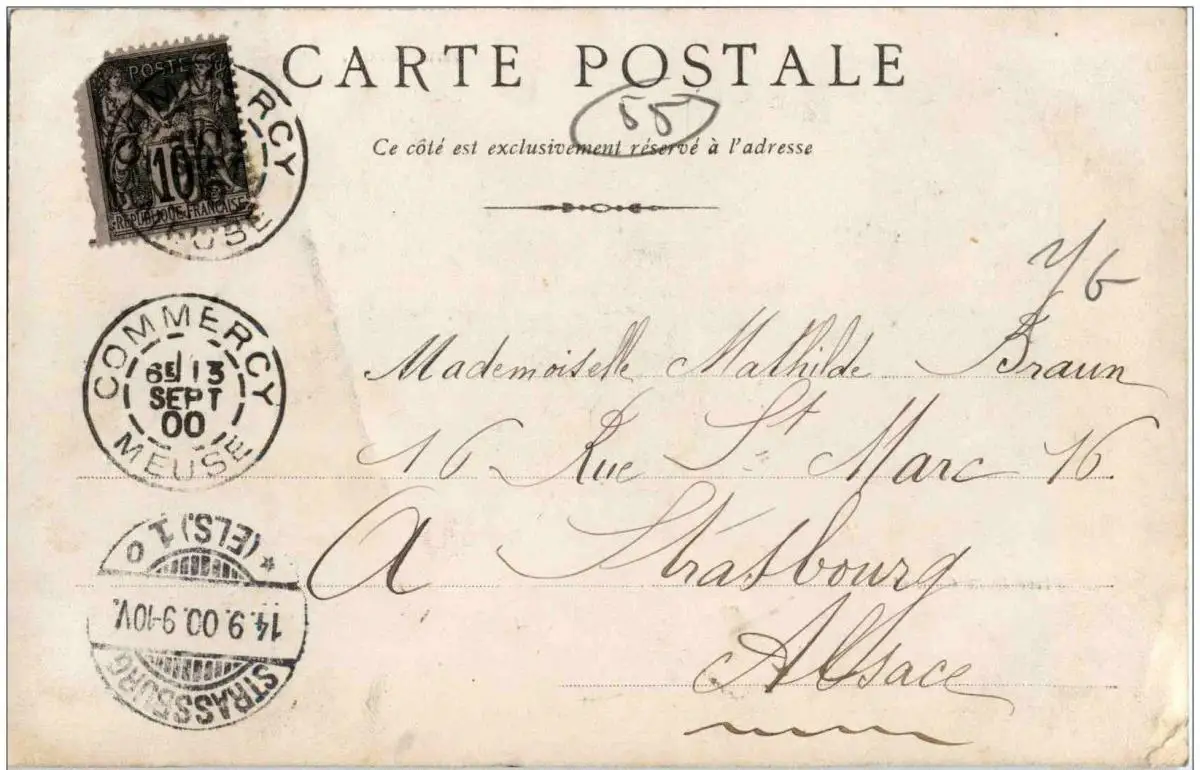 CARTE POSTALE
55
Ce côté est exclusivement réservé à l'adresse
POSTES
10
RÉPUBLIQUE FRANÇAISE
COMMERCY
6E 13
SEPT
00
MEUSE
Mademoiselle Mathilde Braun
16 Rue St Marc 16
A Strasbourg
Alsace
STRASSBURG
14.9.00.9-10V.
* (ELS.) 1 o